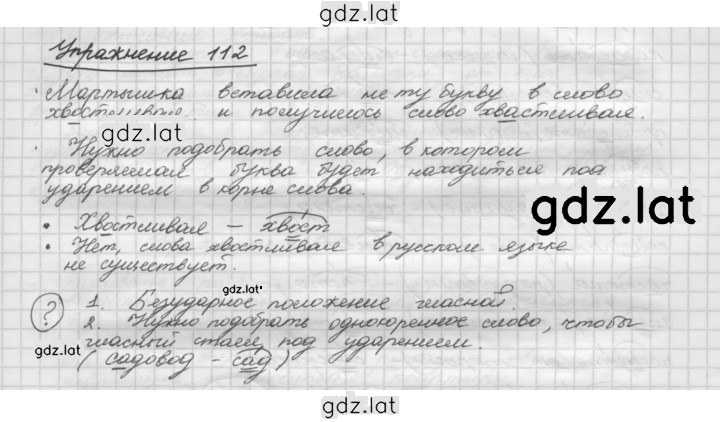 gdz.lat
Упражнение 112
Мартышка вставила не ту букву в слово
и получилось слово хвастливая.
gdz.lat
Нужно подобрать слово, в котором
проверяемая буква будет находиться под
ударением в корне слова.
gdz.lat
• Хвостливая – хвост
• Нет, слова хвостливая в русском языке
не существует.
gdz.lat
? 1. Безударное положение гласной.
2. Нужно подобрать однокоренное слово, чтобы
гласный стал под ударением.
gdz.lat
(садовод – сад)
gdz.lat